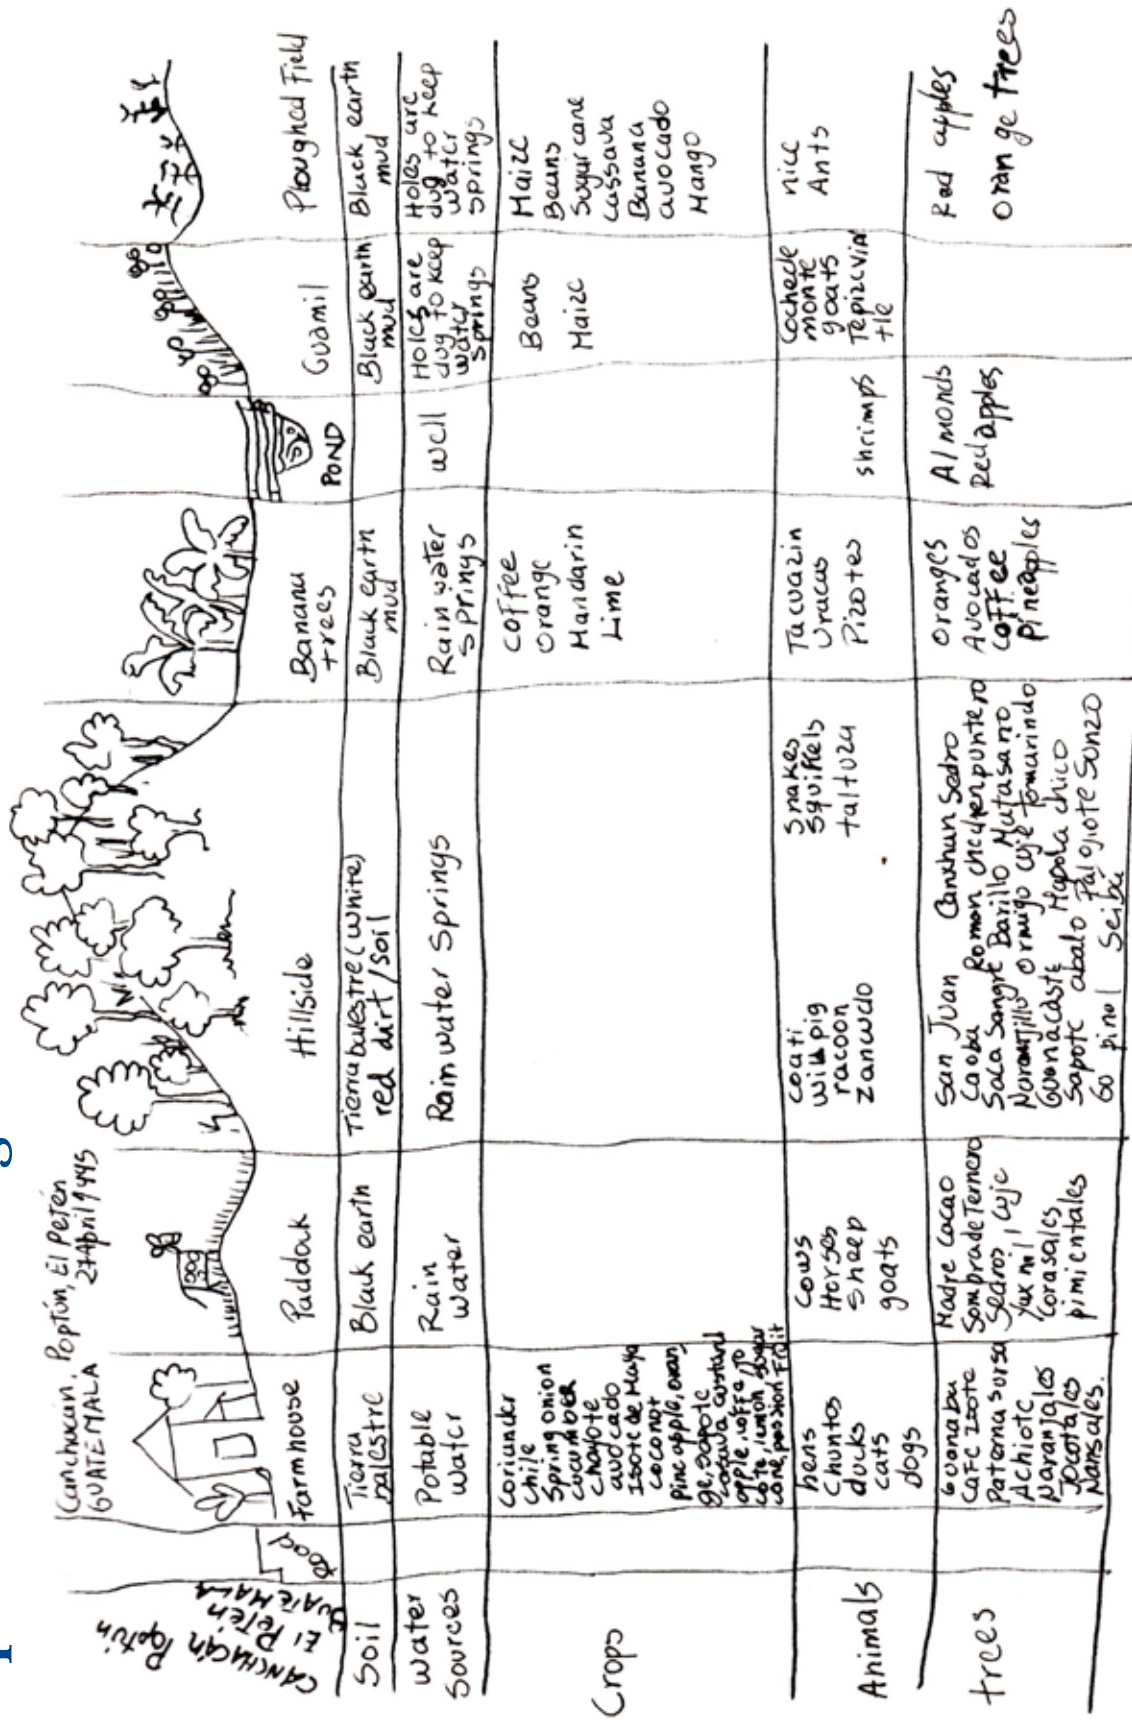 Canchacán, Poptún, El Petén
GUATEMALA
CANCHACÁN Poptún
El Petén
GUATEMALA
Road
Farmhouse
Paddock
Hillside
Banana
trees
POND
Guamil
Ploughed Field
Soil
Tierra
balestre
Black earth
Tierra balestre (white)
red dirt / soil
Black earth
mud
Black earth
mud
Black earth
mud
Water
Sources
Potable
water
Rain
water
Rainwater Springs
Rain water
springs
well
Holes are
dug to keep
water
springs
Holes are
dug to keep
water
springs
Crops
coriander
chile
Spring onion
cucumber
chayote
avocado
Isote de Maya
coconot
pineapple, oran
ge, sapote
custard
apple,
lemon, sugar
cane,
Coffee
orange
Mandarin
Lime
Beans
Maize
Maize
Beans
Sugar cane
Cassava
Banana
avocado
Mango
Animals
hens
Chuntos
ducks
cats
dogs
Cows
Horses
Sheep
goats
coati
wild pig
racoon
zancudo
Snakes
squirrels
taltuza
Tacuazin
Uracus
Pizotes
shrimps
Cochede
monte
goats
Tepizcuin
tle
nice
Ants
trees
Guanaba
Cafe zoote
Paterna sorsa
Achiote
Naranjales
Jocotales
Nansales.
Madre Cacao
Sombra de Ternero
Sedros, Cuje
Yax nil
Corasales,
pimientales
San Juan Canxhan Sedro
Caoba Romon chechenpuntero
Saca Sangre Barillo Matasano
Naranjillo Ormigo cuje tamarindo
Guanacaste Mapola chico
Sapote abalo Palo jiote Sunzo
Go pinol Seiba
Oranges
Avocados
Coffee
Pineapples
Almonds
Red apples
Red apples
orange trees